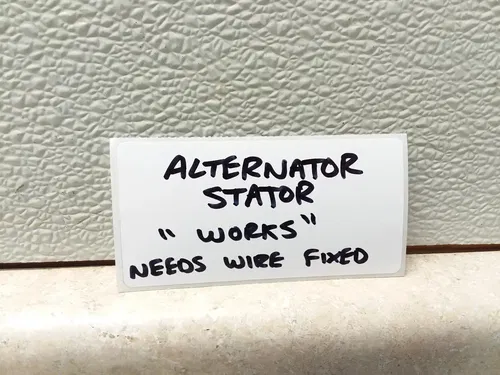 ALTERNATOR
STATOR
"WORKS"
NEEDS WIRE FIXED